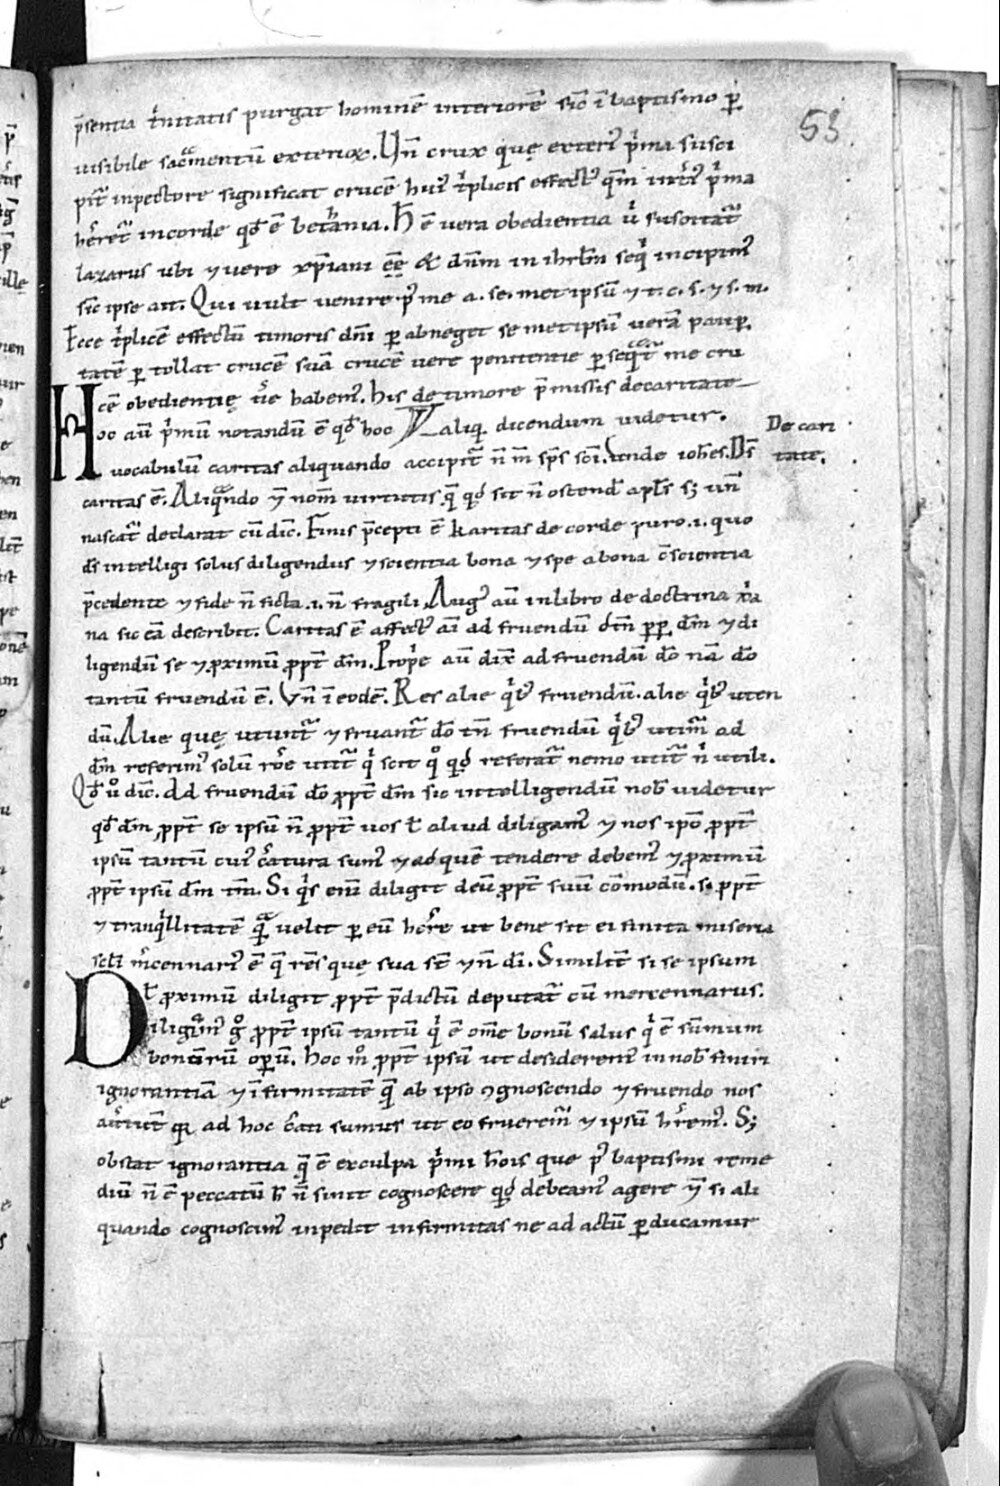 53
p̄sentia t̓nitatis purgat hominē interiorē sic̄ ī baptismo ꝑ
uisibile sac̃mentū exterioꝝ. Vn̄ crux quę exteri᷒ p̓ma susci
pit᷑ inpectore significat crucē hui᷒ t̓plicis effect᷒ qm̄ inti᷒ p̓ma
h̓eret᷑ incorde qd̄ ē bethania. H̄ ē uera obedientia u̓ suscitat᷑
lazarus ubi ⁊ uere xp̄iani ēē & dn̄m in ihrlm̄ seq̓ incipim᷒
sic̄ ipse ait. Qui uult uenire p᷒ me a. se. met ipsū ⁊ t. c. s. ⁊ s. m.
Ecce t̓plicē effectū timoris dn̄i ꝑ abneget se met ipsū uerā pauꝑ
tatē ꝑ tollat crucē suā crucē uere penitentie ꝑ seq̃t᷑ me cru
cē obedientię u̓e habem᷒. his de timore p̄missis decaritate
aliq. dicendum uidetur.
De cari
tate.
Hoc aū p̓mū notandū ē qd̄ hoc
uocabulū caritas aliquando accipit᷑ n̄ m̄ sp̄s sc̄i. Vnde ioh̄es. Ds̄
caritas ē. Aliq̃ndo ⁊ nom̄ uirtutis. q̄ qd̓ sit n̄ ostend̄ apl̄s sꝫ vn̄
nascat᷑ declarat cū dic̄. Finis p̄cepti ē karitas de corde puro. i. quo
ds̄ intelligi solus diligendus ⁊ scientia bona ⁊ spe a bona c̄scientia
p̄cedente ⁊ fide n̄ ficta. i. n̄ fragili. Aug᷒ aū in libro de doctrina xp̓a
na sic eā describit. Caritas ē affect᷒ ai̅ ad fruendū dm̄ ꝓp̄ dm̄ ⁊ di
ligendū se ⁊ ꝓximū ꝓpt̄ dm̄. Prop̓e aū dix̄ ad fruendū do̅ nā do̅
tantū fruendū ē. Vn̄ ī eodē. Res alie q̓b᷒ fruendū. alie q̓b᷒ uten
dū. Alie quę utunt᷑ ⁊ fruant᷑ do̅ tn̄ fruendū q̓b᷒ utim᷑ ad
dm̄ referim᷒ solū ro̅e utit᷑ q̓ scit qͦ qd̓ referat᷑ nemo utit᷑ n̓ utili.
Qd̄ uͦ dic̄. Ad fruendū do̅ ꝓpt̄ dm̄ sic intelligendū nob̄ uidetur
qd̄ dm̄ ꝓpt̄ se ipsū n̄ ꝓpt̄ uos ł aliud diligam᷒ ⁊ nos ipo̅s ꝓpt̄
ipsū tantū cui᷒ c̓atura sum᷒ ⁊ ad quē tendere debem᷒ ⁊ ꝓximū
ꝓpt̄ ipsū dm̄ tm̄. Si q̓s eni̅ diligit deū ꝓpt̄ suū cōmodū. sꝫ ꝓpt̄
⁊ tranq̓llitatē q̃ uelit ꝑ eū h̓ere ut bene sit ei finita miseria
scl̄i m̓cennari᷒ ē q̄ rēs que sua st̄ ⁊ n̄ di̅. Similit̄ si se ipsum
ł ꝓximū diligit ꝓpt̄ p̄dictū deputat᷑ cū mercennarus.
Diligim᷒ gͦ ꝓpt̄ ipsū tantū q̓ ē om̅e bonū salus q̓ ē sūmum
bonorū operū. hoc mͦ ꝓpt̄ ipsū ut desiderem᷒ in nob̄ finiri
ignorantiā ⁊ īfirmitatē q̄ ab ipso ꝯgnoscendo ⁊ fruendo nos
ad hoc c̓ati sumus ut eo fruerem᷑ ⁊ ipsū h̓rem᷒. Sꝫ
obstat ignorantia q̄ ē ex culpa p̓mi ho̅is que p᷒ baptismi reme
diū n̄ ē peccatū ꝫ n̄ sinit cognoscere qd̓ debeam᷒ agere ⁊ si ali
quando cognoscim᷒ inpedit infirmitas ne ad actū ꝑducamur